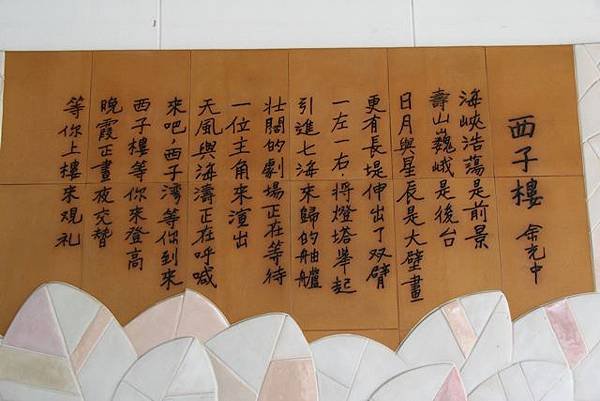 西子樓 余光中
海峽浩蕩是前景
壽山巍峨是後台
日月與星辰是大壁畫
更有長堤伸出了双臂
一左一右,將燈塔舉起
引進七海來歸的舳艫
壯闊的劇場正在等待
一位主角來演出
天風與海濤正在呼喊
來吧,西子灣等你到來
西子樓等你來登高
晚霞正晝夜交替
等你上樓來观礼